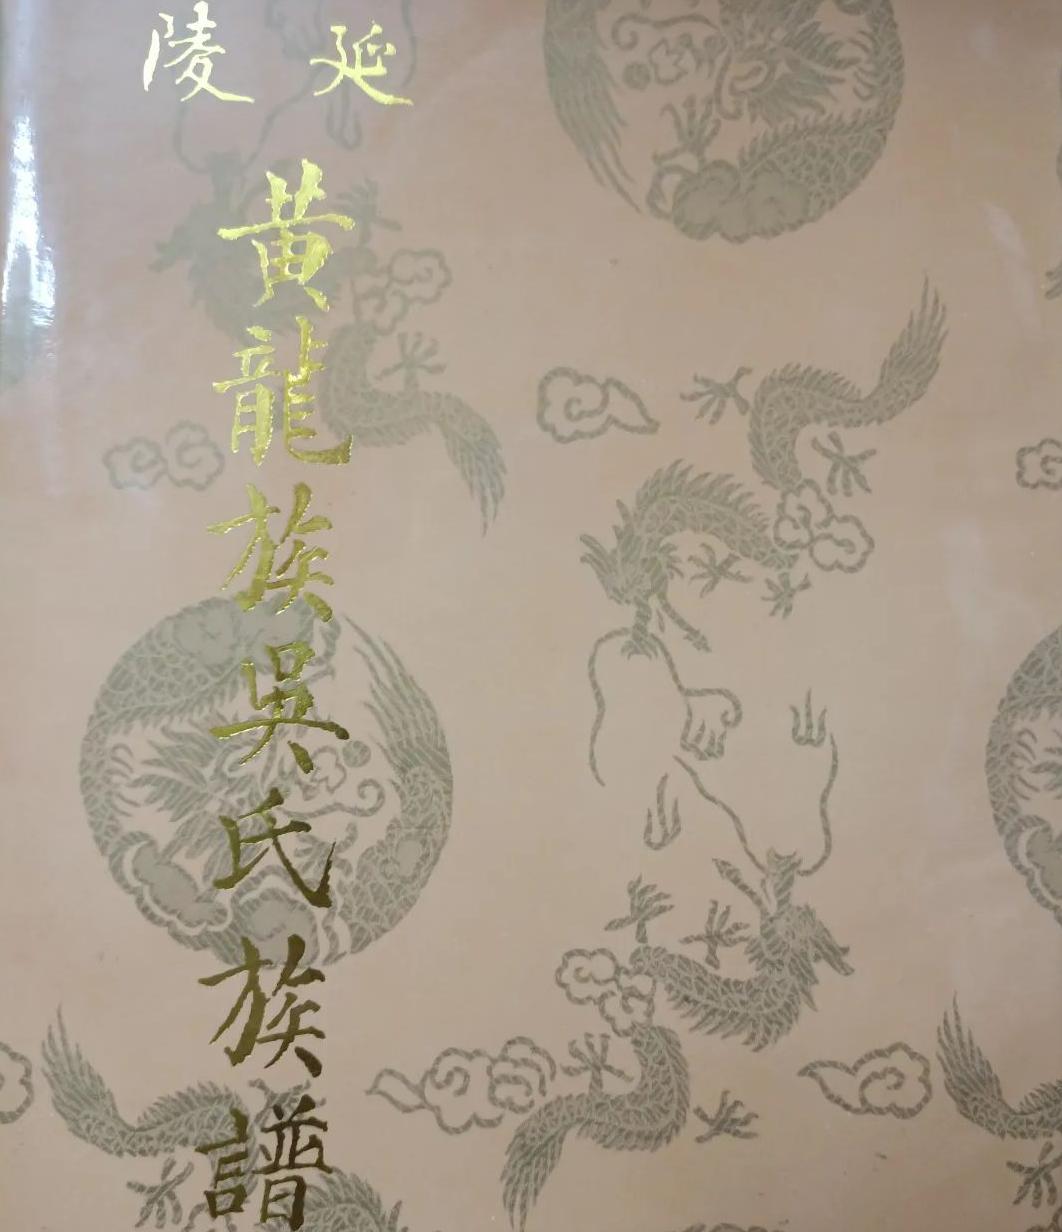 延陵
黄龍族吳氏族譜